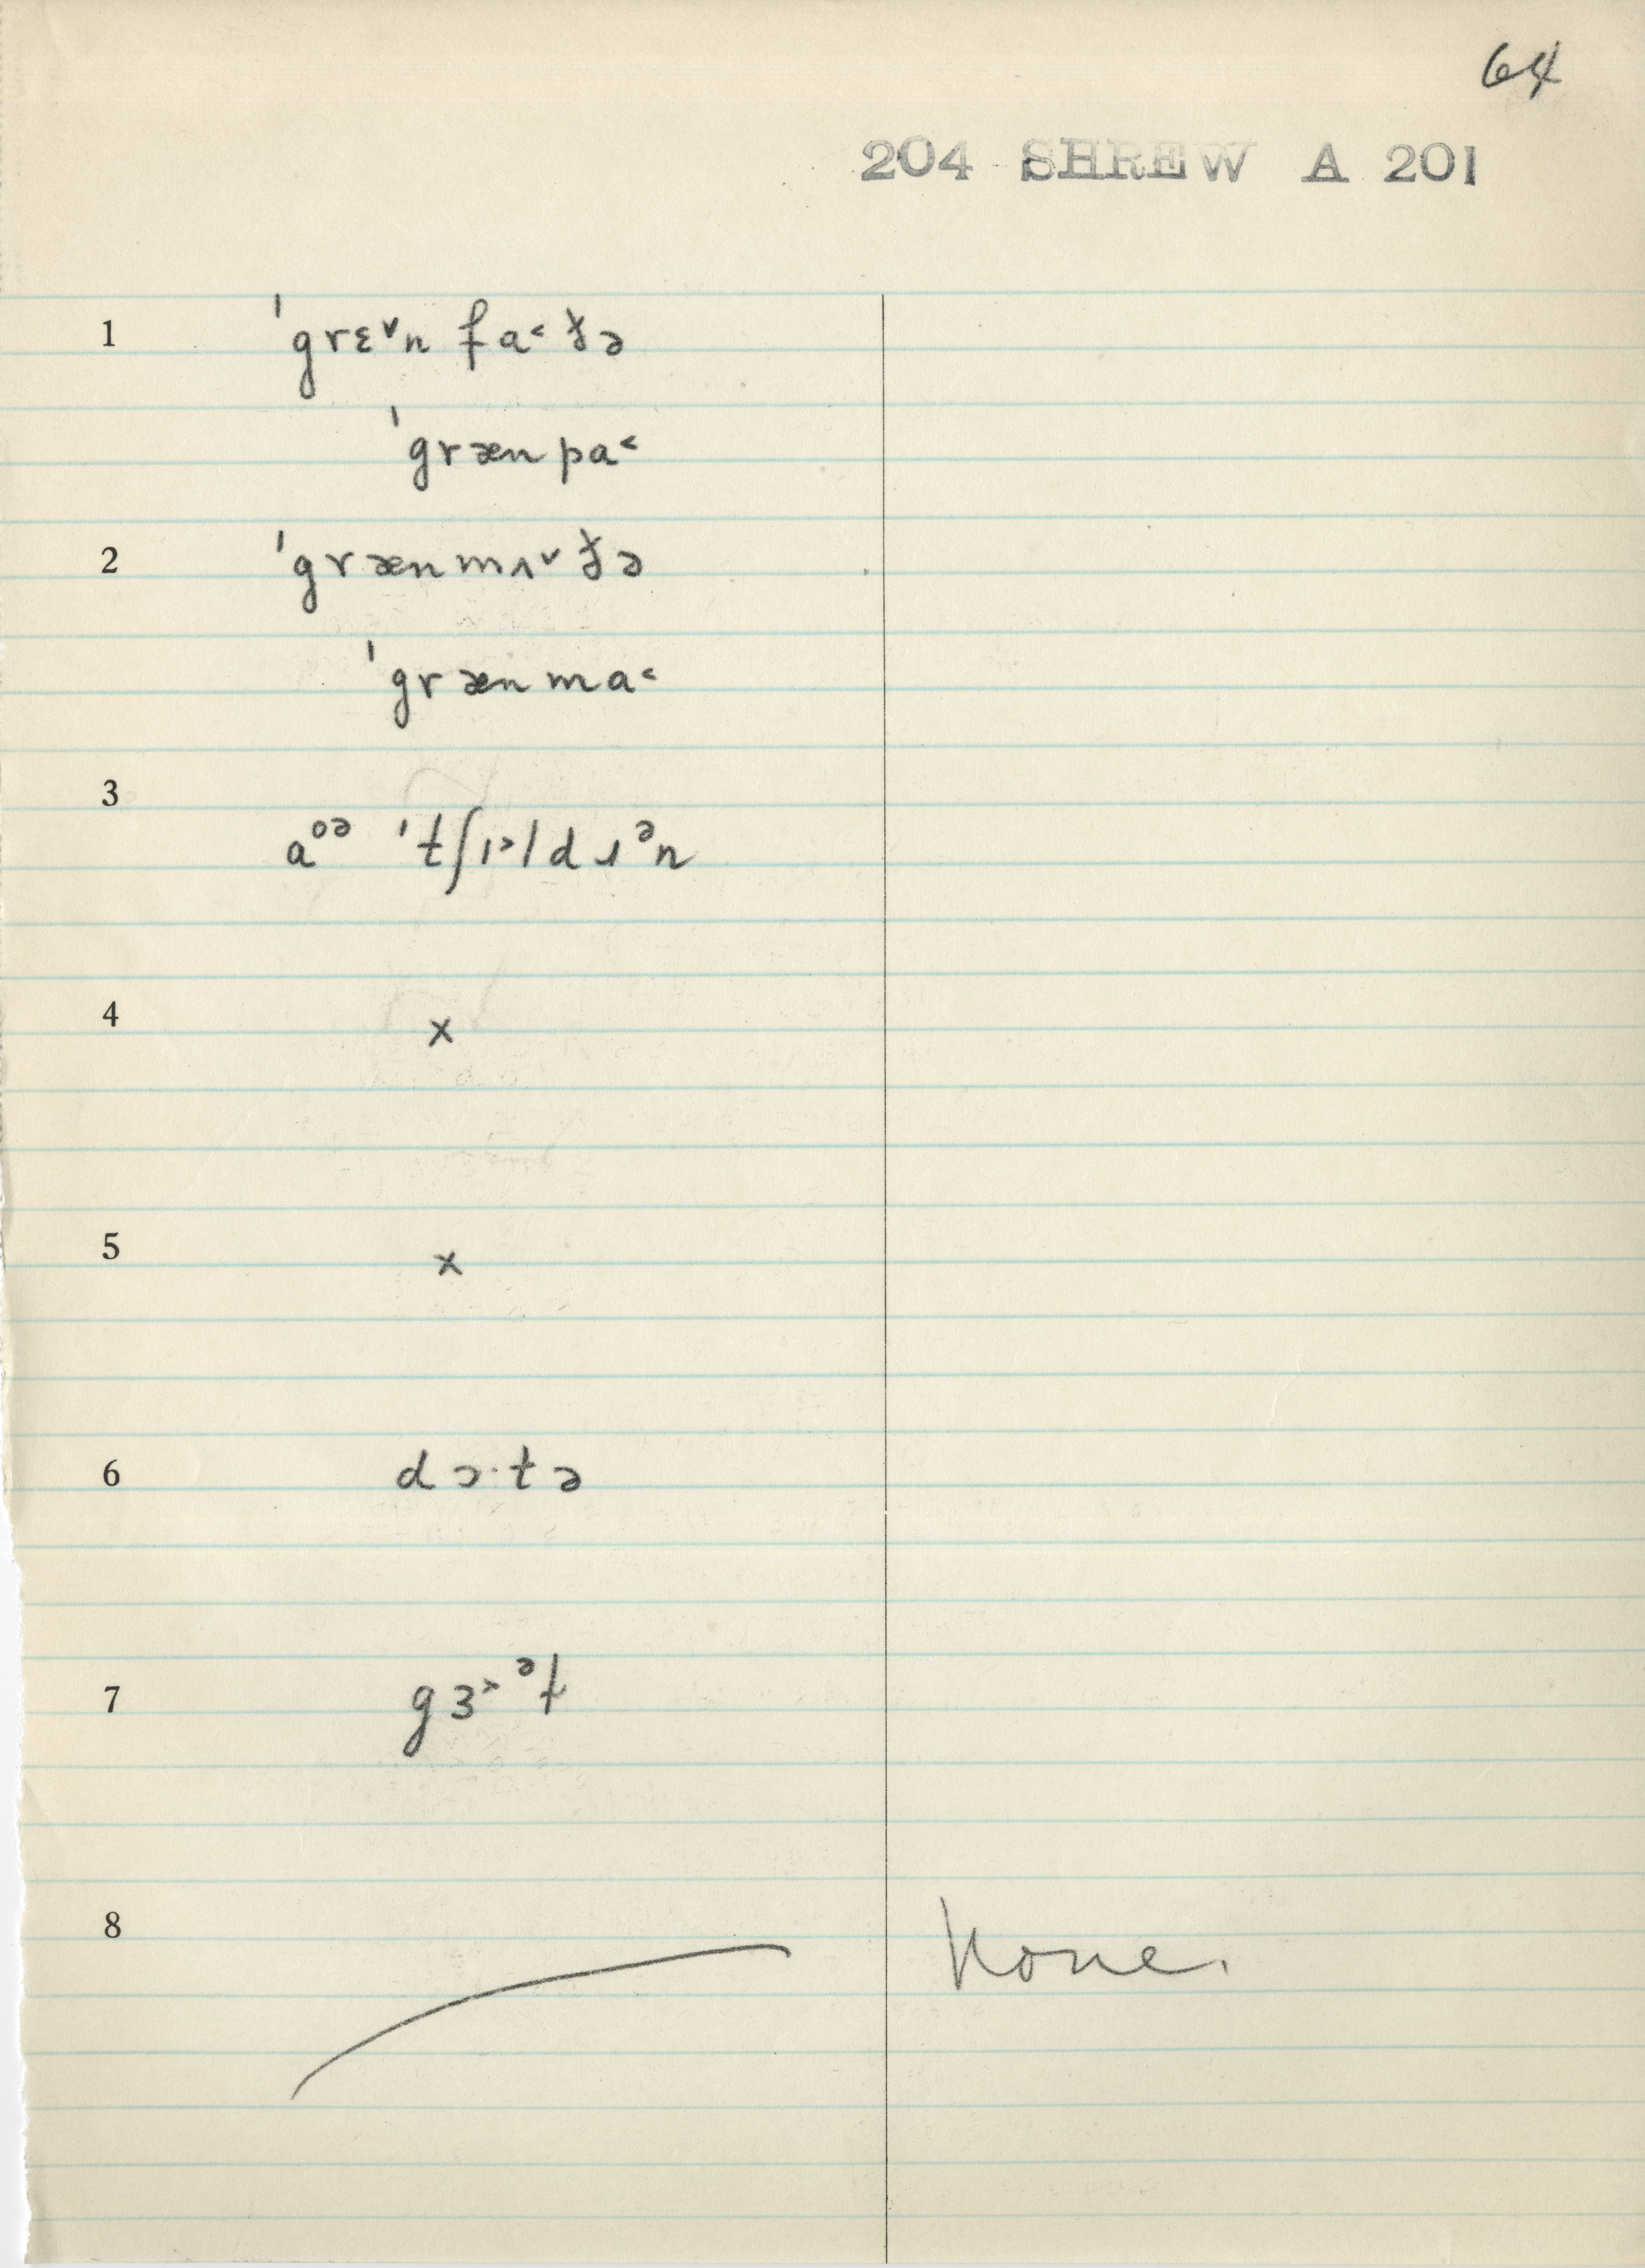 64
204 SHREW A 201
1 ˈgrɛ˅n fa˂ðə
ˈgræn pa˂
2 ˈgrænmʌ˅ðə
ˈgrænma˂
3
aᵒᵊ ˈtʃɪ˃ldɹᵊn
4 x
5 x
6 dɔ·tə
7 gɜ˃ᵊɫ
8 None.